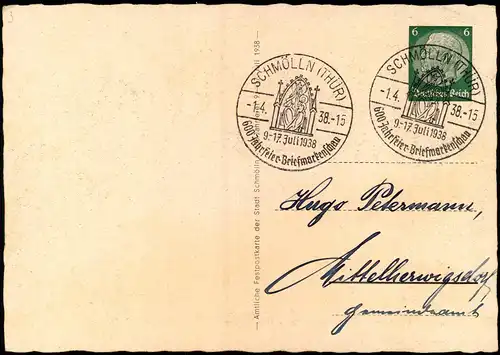 6 6
Deutsches Reich
SCHMÖLLN (THÜR)
-1.4. 38.-15
9-17. Juli 1938
600 Jahrfeier-Briefmarkenschau
SCHMÖLLN (THÜR)
-1.4. 38.-15
9-17. Juli 1938
600 Jahrfeier-Briefmarkenschau
Amtliche Festpostkarte der Stadt Schmölln Juli 1938
Hugo Petermann,
Mittelherwigsdorf
Gemeindeamt